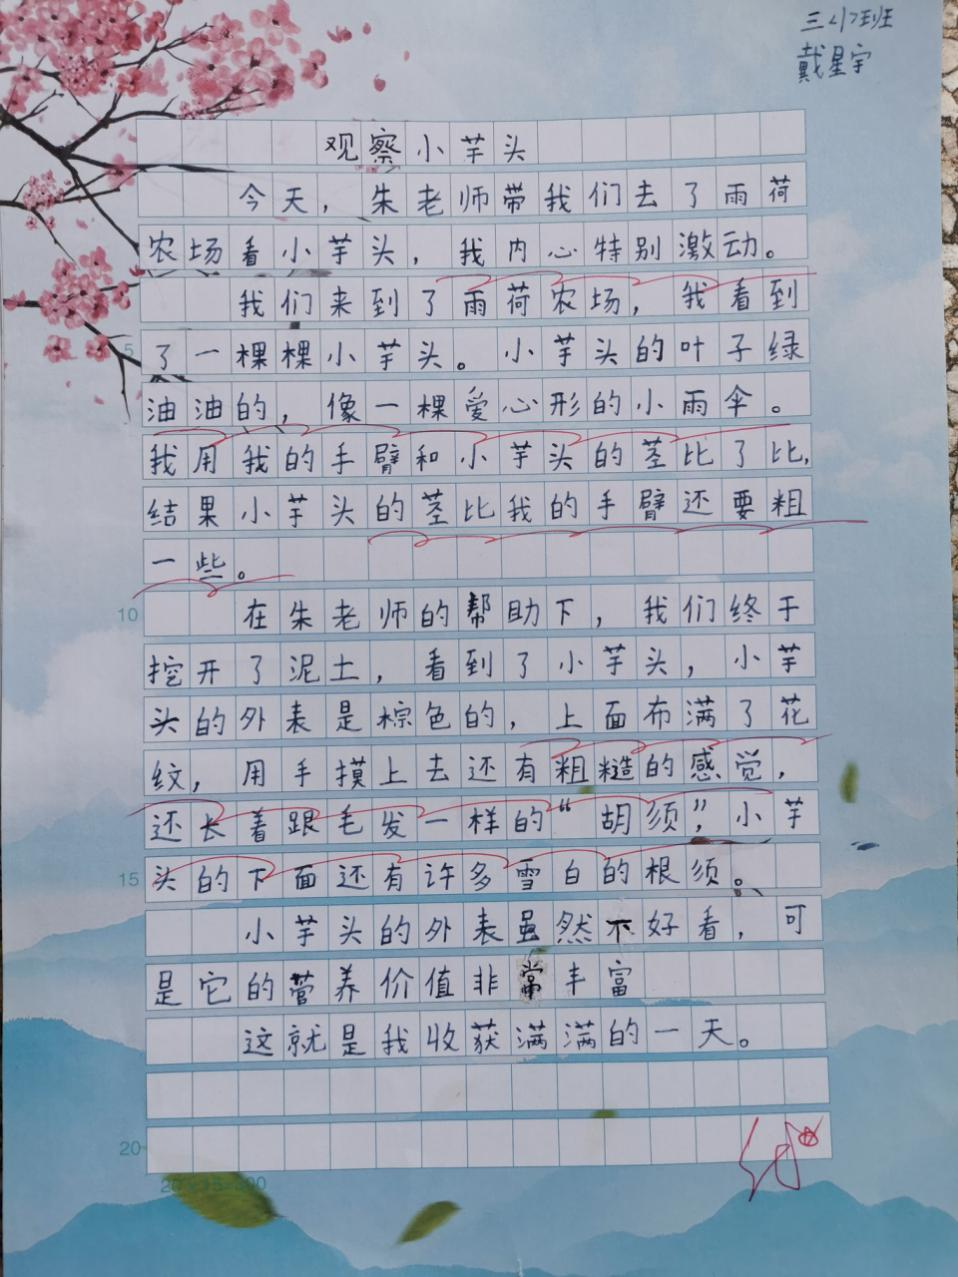 三(1)班
戴星宇
观察小芋头
今天，朱老师带我们去了雨荷
农场看小芋头，我内心特别激动。
我们来到了雨荷农场，我看到
了一棵棵小芋头。小芋头的叶子绿
油油的，像一棵爱心形的小雨伞。
我用我的手臂和小芋头的茎比了比，
结果小芋头的茎比我的手臂还要粗
一些。
在朱老师的帮助下，我们终于
挖开了泥土，看到了小芋头，小芋
头的外表是棕色的，上面布满了花
纹，用手摸上去还有粗糙的感觉，
还长着跟毛发一样的“胡须”，小芋
头的下面还有许多雪白的根须。
小芋头的外表虽然不好看，可
是它的营养价值非常丰富
这就是我收获满满的一天。
5
10
15
20